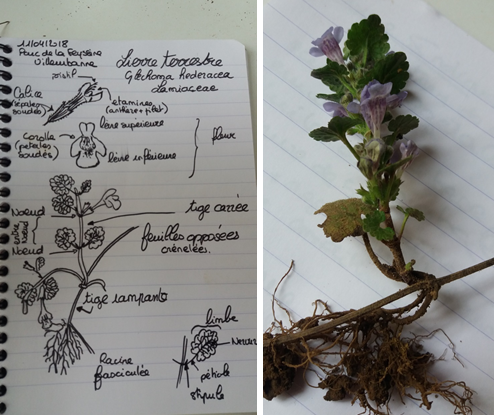 11/04/2018
Parc de la Feyssine
Villeurbanne
Lierre terrestre
Glechoma hederacea
Lamiaceae
pistil
Calice
(sépales soudés)
étamines
(anthère + filet)
Corolle
(pétales soudés)
lèvre supérieure
lèvre inférieure
fleur
Noeud
entre noeud
Noeud
tige carrée
feuilles opposées
crénelées.
tige rampante
Racine
fasciculée
limbe
pétiole
stipule